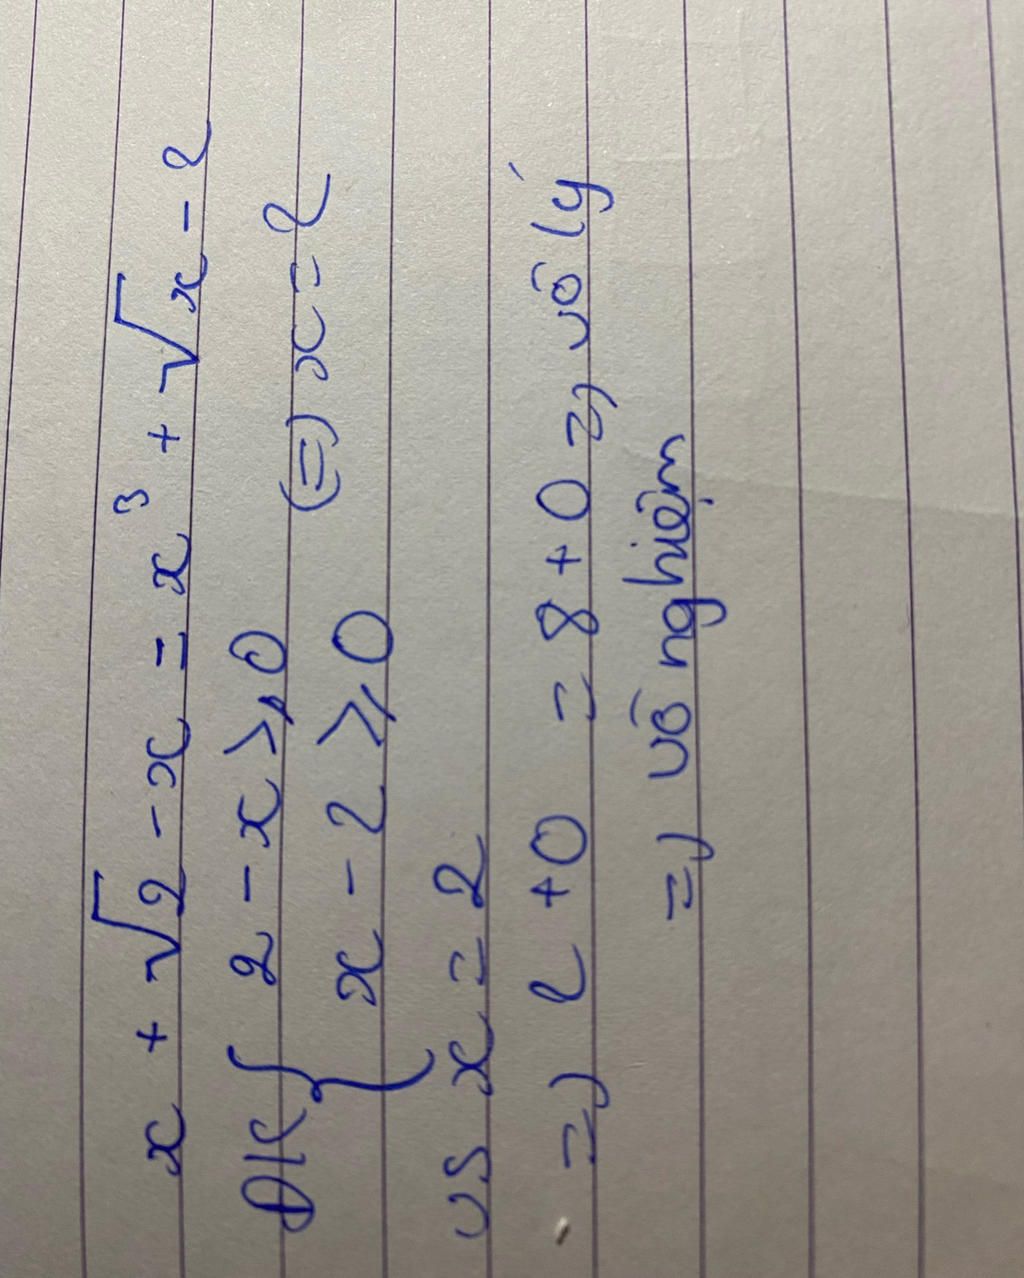 x + √2 - x = x³ + √x - 2
ĐK { 2 - x ⩾ 0
x - 2 ⩾ 0 (=) x = 2
vs x = 2
=) 2 + 0 = 8 + 0 =) vô lý
=) vô nghiệm